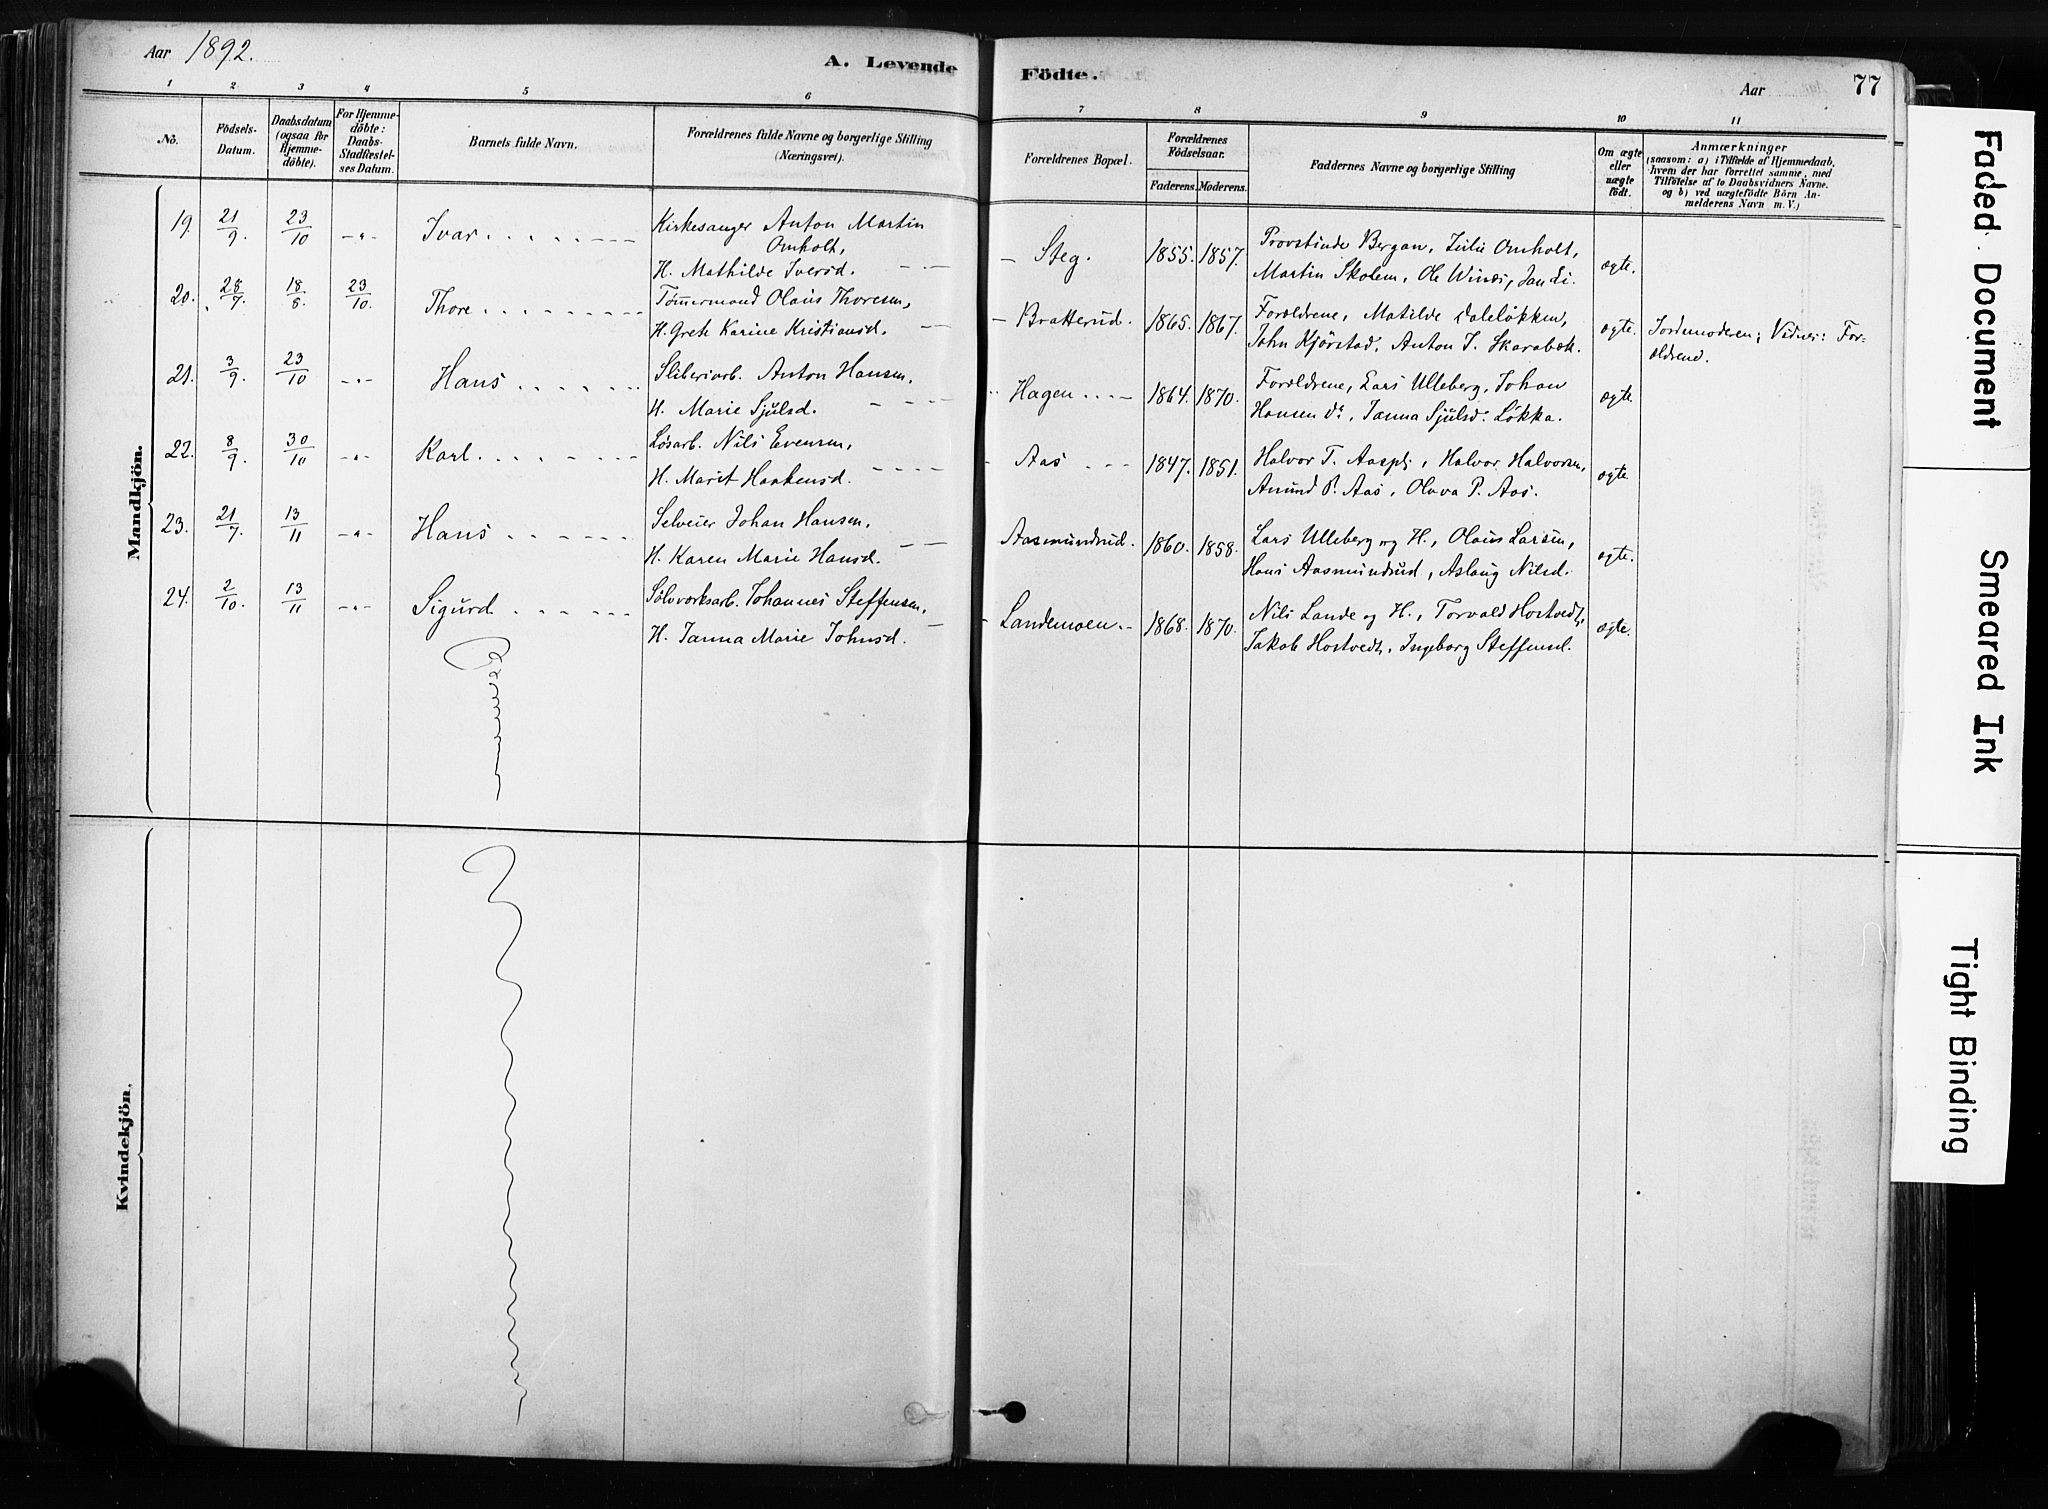 Aar 1892.
A. Levende Födte.
Aar
77
1 2 3 4 5 6 7 8 9 10 11
No.
Födsels-Datum.
Daabsdatum (ogsaa for Hjemmedöbte).
For Hjemmedöbte: Daabs-Stadfæstelses Datum.
Barnets fulde Navn.
Forældrenes fulde Navne og borgerlige Stilling
(Næringsvei).
Forældrenes Bopæl.
Forældrenes Födselsaar.
Faderens. Moderens.
Faddernes Navne og borgerlige Stilling
Om ægte eller uægte födt.
Anmærkninger
(saasom: a) i Tilfælde af Hjemmedaab,
hvem der har forrettet samme, med
Tilföielse af to Daabsvidners Navne.
og b) ved uægtefödte Börn Anmelderens Navn m. V.)
Mandkjön.
19. 21/9. 23/10 -"- Ivar. Kirkesanger Anton Martin
Omholt,
H. Mathilde Iversd. - Steg. 1855. 1857. Provstinde Bergan, Julie Omholt,
Martin Skolem, Ole Winæs, Jan Li. ægte.
20. 28/7. 18/8. 23/10. Thore Tömmermand Olaus Thoresen,
H. Grete Karine Kristiansd. - Bratterud. 1865. 1867. Forældrene, Matilde Daleløkken,
John Kjörstad, Anton J. Skarabæk. ægte. Jordemoderen; Vidner: For-
ældrene.
21. 3/9. 23/10 -"- Hans Sliberiarb. Anton Hansen,
H. Marie Sjulsd. Hagen 1864. 1870. Forældrene, Lars Ulleberg, Johan
Hansen do, Janna Sjulsd. Løkka. ægte.
22. 8/9. 30/10 -"- Karl. Løsarb. Nils Evensen,
H. Marit Haakensd. - Aas 1847. 1851. Halvor T. Aaspl., Halvor Halvorsen,
Anund P. Aas, Olava P. Aas. ægte.
23. 21/7. 13/11 -"- Hans Selveier Johan Hansen,
H. Karen Marie Hansd. Aasmundrud. 1860. 1858. Lars Ulleberg og H., Olaus Larsen,
Hans Aasmundrud, Aslaug Nilsd. ægte.
24. 2/10. 13/11 -"- Sigurd Sølvværksarb. Johannes Steffensen,
H. Janna Marie Johnsd. - Landemoen. 1868. 1870. Nils Lande og H., Torvald Hostvedt,
Jakob Hostvedt, Ingeborg Steffensd. ægte.
Kvindekjön.
Faded Document
Smeared Ink
Tight Binding